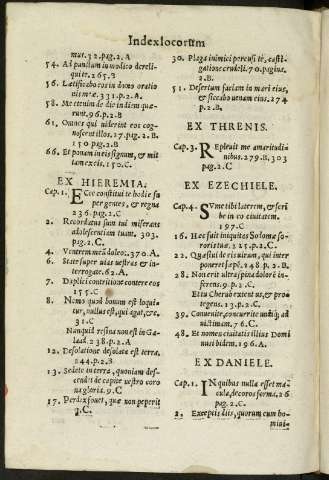 Index locorum
mur.32.pag.2.A
54. Ad punctum in modico dereli-
qui te.265.B
56. Lætificabo eos in domo oratio
nis meæ.331.p.2.A
58. Me etenim de die in diem quæ-
runt.96.p.2.B
61. Omnes qui uiderint eos cog-
noscent illos.27.pag.2.B.
150 pag.2.B
66. Et ponam in eis signum, et mit
tam ex eis.150.C.
EX HIEREMIA.
Cap. 1. Ecce constitui te hodie su
per gentes, et regna
236.pag.2.C
2. Recordatus sum tui miserans
adolescentiam tuam. 303.
pag.2.C.
4. Ventrem meũ doleo.370.A.
6. State super uias uestras & in-
terrogate.62.A.
7. Duplici contritione contere eos
255.C
8. Nemo quod bonum est loqui
tur, nullus est, qui agat, &c.
31.C
Nunquid resina non est in Ga-
laad.238.p.2.A
12. Desolatione desolata est terra.
244.p.2.B
13. Sedete in terra, quoniam des-
cendet de capite uestro coro
na gloriæ.9.C
17. Perdix fouet, quæ non peperit
9.C.
30. Plaga inimici percusi te, casti-
gatione crudeli.70.pagina.
2.B.
51. Desertum faciam in mari eius,
& siccabo uenam eius.274
p.2.B.
EX THRENIS.
Cap. 3. Repleuit me amaritudi-
nibus.279.B.303
pag.2.C
EX EZECHIELE.
Cap. 4. Sume tibi laterem, & scri
be in eo ciuitatem.
197.C
16. Hæc fuit iniquitas Sodomæ so-
roris tuæ.325.p.2.C.
22. Quæsiui de eis uirum, qui inter
poneret sæpẽ.248.p.2.B.
28. Non erit ultra spina dolorẽ in-
ferens.9.p.2.C
Et tu Cherub extent us, & pro-
tegens.13.p.2.C.
39. Conuenite, concurrite undiq; ad
uictimam.76.C.
48. Et nomen ciuitatis illius Domi
nus ibidem.196.A.
EX DANIELE.
Cap. 1. In quibus nulla esset ma
cula, decoros forma.26
pag.2.C.
2. Exceptis diis, quorum cum ho-
mini-